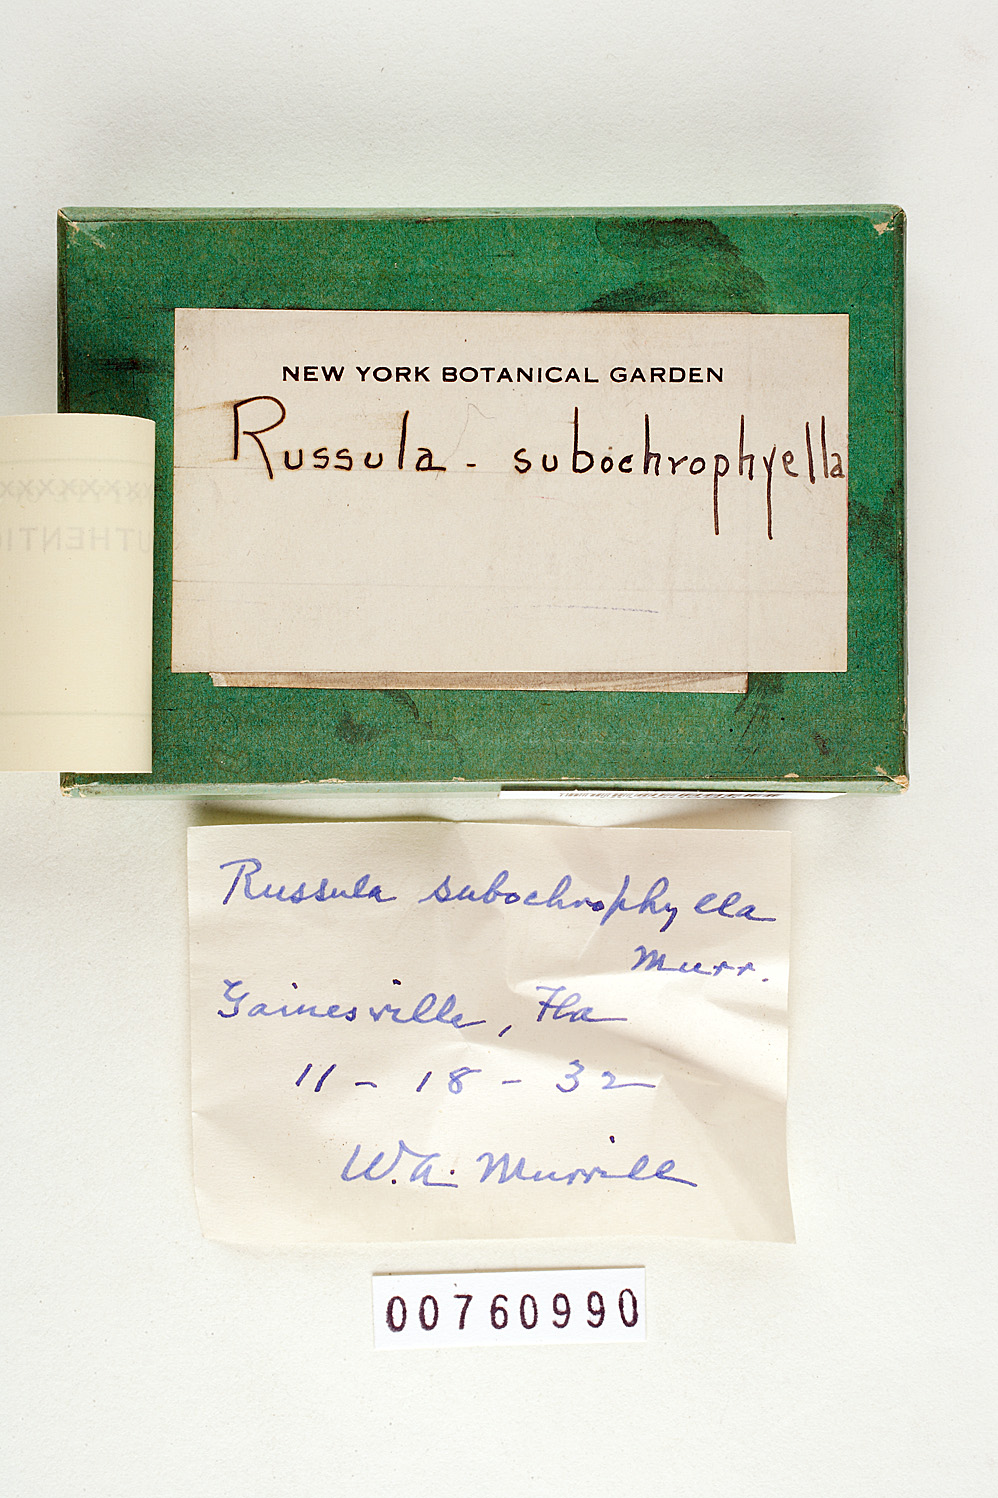 NEW YORK BOTANICAL GARDEN
Russula - subochrophyella
Russula subochrophylla
Murr.
Gainesville, Fla
11 - 18 - 32
W.A. Murrill
00760990